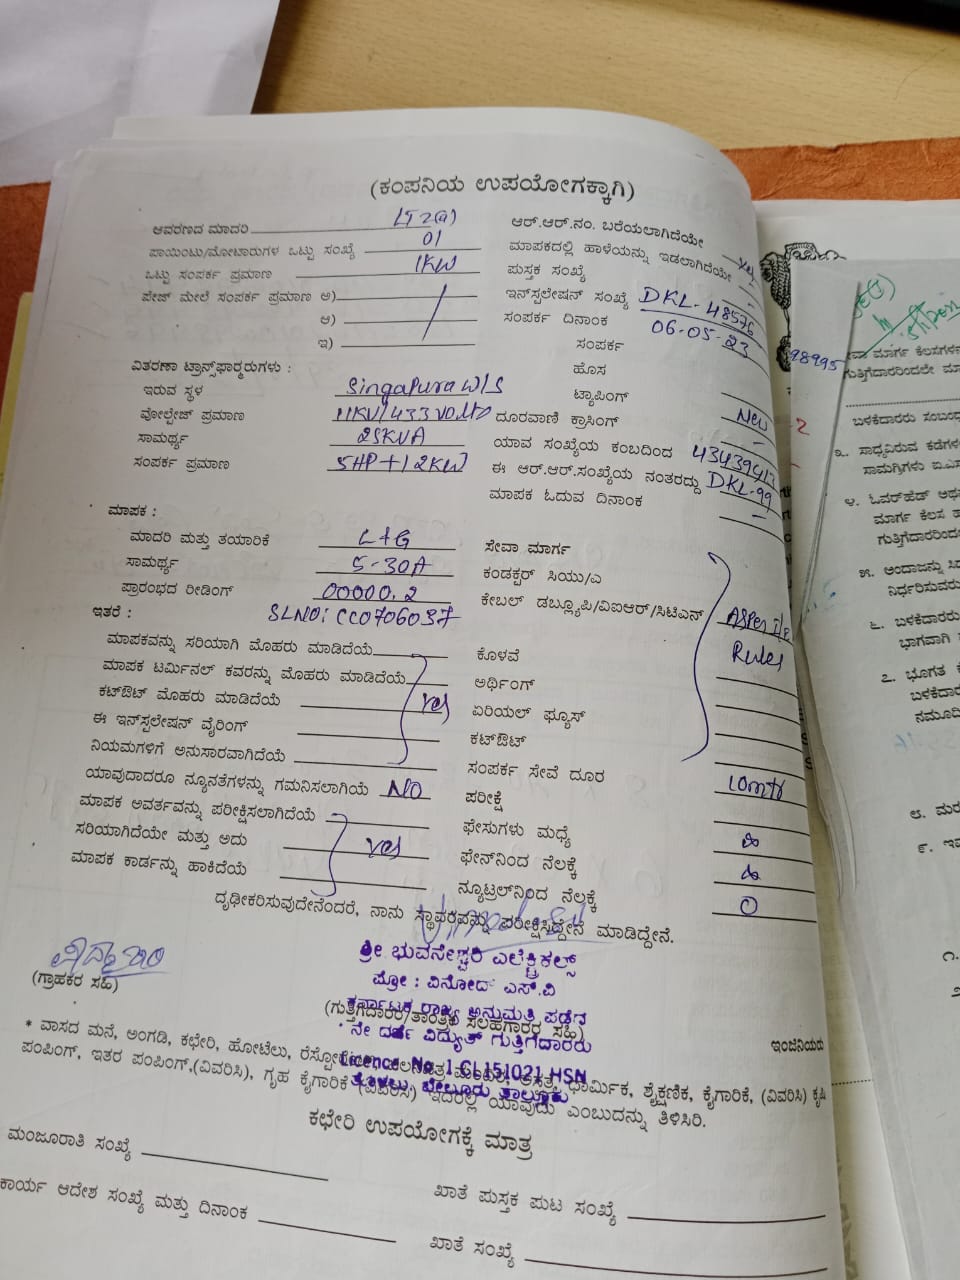 (ಕಂಪನಿಯ ಉಪಯೋಗಕ್ಕಾಗಿ)
ಆವರಣದ ಮಾದರಿ LT2(a)
ಪಾಯಿಂಟು/ಮೋಟಾರುಗಳ ಒಟ್ಟು ಸಂಖ್ಯೆ 01
ಒಟ್ಟು ಸಂಪರ್ಕ ಪ್ರಮಾಣ 1KW
ಪೇಜ್ ಮೇಲೆ ಸಂಪರ್ಕ ಪ್ರಮಾಣ ಅ)
ಆ)
ಇ)
ವಿತರಣಾ ಟ್ರಾನ್ಸ್‌ಫಾರ್‍ಮರುಗಳು :
ಇರುವ ಸ್ಥಳ Singapura W/S
ವೋಲ್ಟೇಜ್ ಪ್ರಮಾಣ 11KV/433 Volts
ಸಾಮರ್ಥ್ಯ 25KVA
ಸಂಪರ್ಕ ಪ್ರಮಾಣ 5HP+12KW
ಮಾಪಕ :
ಮಾದರಿ ಮತ್ತು ತಯಾರಿಕೆ L+G
ಸಾಮರ್ಥ್ಯ 5-30A
ಪ್ರಾರಂಭದ ರೀಡಿಂಗ್ 00000.2
ಇತರೆ : SLNO: CC0706037
ಮಾಪಕವನ್ನು ಸರಿಯಾಗಿ ಮೊಹರು ಮಾಡಿದೆಯೆ
ಮಾಪಕ ಟರ್ಮಿನಲ್ ಕವರನ್ನು ಮೊಹರು ಮಾಡಿದೆಯೆ
ಕಟ್‌ಔಟ್ ಮೊಹರು ಮಾಡಿದೆಯೆ Yes
ಈ ಇನ್‌ಸ್ಟಲೇಷನ್ ವೈರಿಂಗ್
ನಿಯಮಗಳಿಗೆ ಅನುಸಾರವಾಗಿದೆಯೆ
ಯಾವುದಾದರೂ ನ್ಯೂನತೆಗಳನ್ನು ಗಮನಿಸಲಾಗಿಯೆ NO
ಮಾಪಕ ಅವರ್ತವನ್ನು ಪರೀಕ್ಷಿಸಲಾಗಿದೆಯೆ
ಸರಿಯಾಗಿದೆಯೇ ಮತ್ತು ಅದು Yes
ಮಾಪಕ ಕಾರ್ಡನ್ನು ಹಾಕಿದೆಯೆ
ಆರ್.ಆರ್.ನಂ. ಬರೆಯಲಾಗಿದೆಯೇ
ಮಾಪಕದಲ್ಲಿ ಹಾಳೆಯನ್ನು ಇಡಲಾಗಿದೆಯೇ Yes
ಪುಸ್ತಕ ಸಂಖ್ಯೆ
ಇನ್‌ಸ್ಟಲೇಷನ್ ಸಂಖ್ಯೆ DKL-48576
ಸಂಪರ್ಕ ದಿನಾಂಕ 06-05-23
ಸಂಪರ್ಕ
ಹೊಸ
ಟ್ಯಾಪಿಂಗ್ New
ದೂರವಾಣಿ ಕ್ರಾಸಿಂಗ್ -
ಯಾವ ಸಂಖ್ಯೆಯ ಕಂಬದಿಂದ 43439413
ಈ ಆರ್.ಆರ್.ಸಂಖ್ಯೆಯ ನಂತರದ್ದು DKL-99
ಮಾಪಕ ಓದುವ ದಿನಾಂಕ -
ಸೇವಾ ಮಾರ್ಗ
ಕಂಡಕ್ಟರ್ ಸಿಯು/ಎ
ಕೇಬಲ್ ಡಬ್ಲ್ಯೂಪಿ/ವಿಐಆರ್/ಸಿಟಿಎನ್ ASPer I/E
ಕೊಳವೆ Rules
ಅರ್ಥಿಂಗ್
ಏರಿಯಲ್ ಫ್ಯೂಸ್
ಕಟ್‌ಔಟ್
ಸಂಪರ್ಕ ಸೇವೆ ದೂರ 10mtr
ಪರೀಕ್ಷೆ
ಫೇಸುಗಳು ಮಧ್ಯೆ
ಫೇಸ್‌ನಿಂದ ನೆಲಕ್ಕೆ
ನ್ಯೂಟ್ರಲ್‌ನಿಂದ ನೆಲಕ್ಕೆ 0
ದೃಢೀಕರಿಸುವುದೇನೆಂದರೆ, ನಾನು ಸ್ಥಾವರವನ್ನು ಪರೀಕ್ಷಿಸಿದ್ದೇನೆ ಮಾಡಿದ್ದೇನೆ.
(ಗ್ರಾಹಕರ ಸಹಿ)
ಶ್ರೀ ಭುವನೇಶ್ವರಿ ಎಲೆಕ್ಟ್ರಿಕಲ್ಸ್
ಪ್ರೋ : ವಿನೋದ್ ಎಸ್.ವಿ
ಕರ್ನಾಟಕ ರಾಜ್ಯ ಅನುಮತಿ ಪಡೆದ
(ಗುತ್ತಿಗೆದಾರರ/ತಾಂತ್ರಿಕ ಸಲಹಗಾರರ ಸಹಿ)
ನೇ ದರ್ಜೆ ವಿದ್ಯುತ್ ಗುತ್ತಿಗೆದಾರರು
Licence No. 1 CL151021 HSN
ಬೇಲೂರು ತಾಲ್ಲೂಕು
ಇಂಜಿನಿಯರು
* ವಾಸದ ಮನೆ, ಅಂಗಡಿ, ಕಛೇರಿ, ಹೋಟೆಲು, ಧಾರ್ಮಿಕ, ಶೈಕ್ಷಣಿಕ, ಕೈಗಾರಿಕೆ, (ವಿವರಿಸಿ) ಕೃಷಿ
ಪಂಪಿಂಗ್, ಇತರ ಪಂಪಿಂಗ್,(ವಿವರಿಸಿ), ಗೃಹ ಕೈಗಾರಿಕೆ (ವಿವರಿಸಿ) ಇದರಲ್ಲಿ ಯಾವುದು ಎಂಬುದನ್ನು ತಿಳಿಸಿರಿ.
ಕಛೇರಿ ಉಪಯೋಗಕ್ಕೆ ಮಾತ್ರ
ಮಂಜೂರಾತಿ ಸಂಖ್ಯೆ
ಖಾತೆ ಪುಸ್ತಕ ಪುಟ ಸಂಖ್ಯೆ
ಕಾರ್ಯ ಆದೇಶ ಸಂಖ್ಯೆ ಮತ್ತು ದಿನಾಂಕ
ಖಾತೆ ಸಂಖ್ಯೆ
98995
ಮಾರ್ಗ ಕೆಲಸಗಳ
ಬಳಕೆದಾರರು
೩. ಸಾಧ್ಯವಿರುವ
೪. ಓವರ್‌ಹೆಡ್
ಮಾರ್ಗ ಕೆಲಸ
೫. ಅಂದಾಜನ್ನು
೬. ಬಳಕೆದಾರರು
ಭಾಗವಾಗಿ
೭. ಭೂಗತ
೮.
೯.